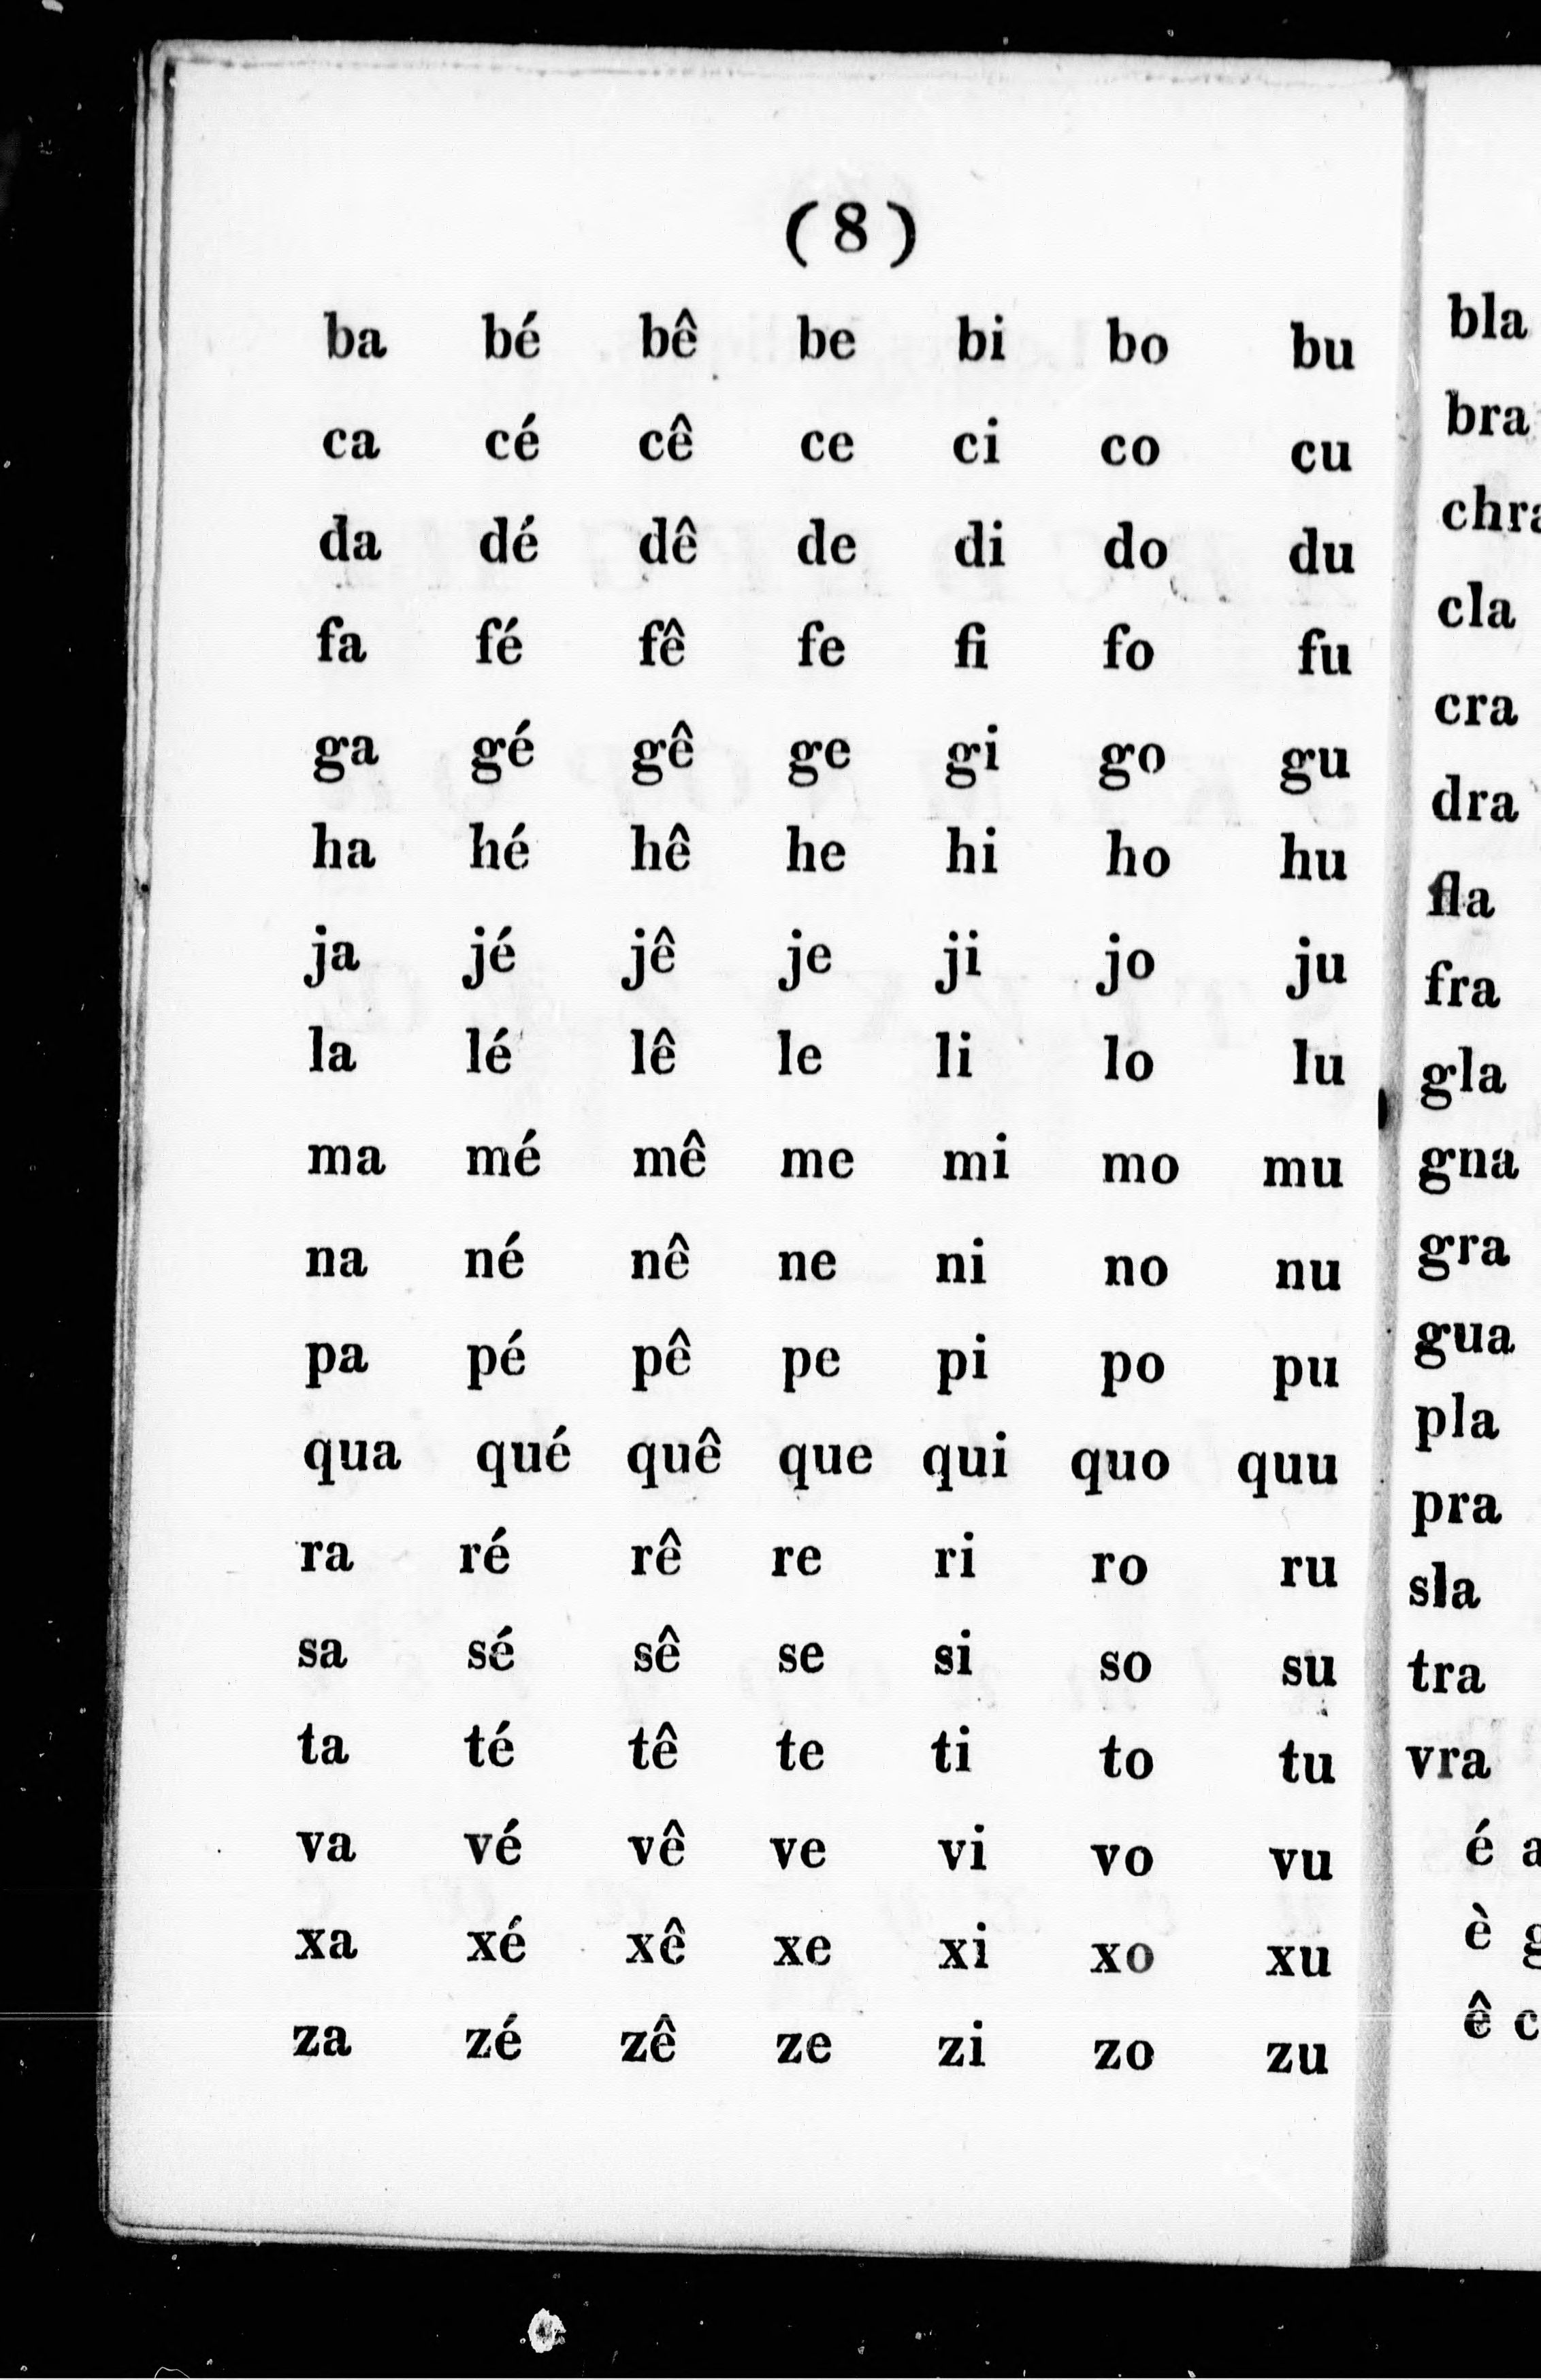 (8)
ba bé bê be bi bo bu
ca cé cê ce ci co cu
da dé dê de di do du
fa fé fê fe fi fo fu
ga gé gê ge gi go gu
ha hé hê he hi ho hu
ja jé jê je ji jo ju
la lé lê le li lo lu
ma mé mê me mi mo mu
na né nê ne ni no nu
pa pé pê pe pi po pu
qua qué quê que qui quo quu
ra ré rê re ri ro ru
sa sé sê se si so su
ta té tê te ti to tu
va vé vê ve vi vo vu
xa xé xê xe xi xo xu
za zé zê ze zi zo zu
bla
bra
chra
cla
cra
dra
fla
fra
gla
gna
gra
gua
pla
pra
sla
tra
vra
é
è
ê